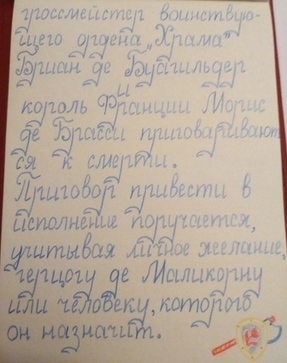 гроссмейстер воинствую-
щего ордена „Храма"
Бриан де Буагильдер
и
король Франции Морис
де Брасси приговаривают
ся к смерти.
Приговор привести в
исполнение поручается,
учитывая личное желание,
герцогу де Маликорну
или человеку, которого
он назначит.